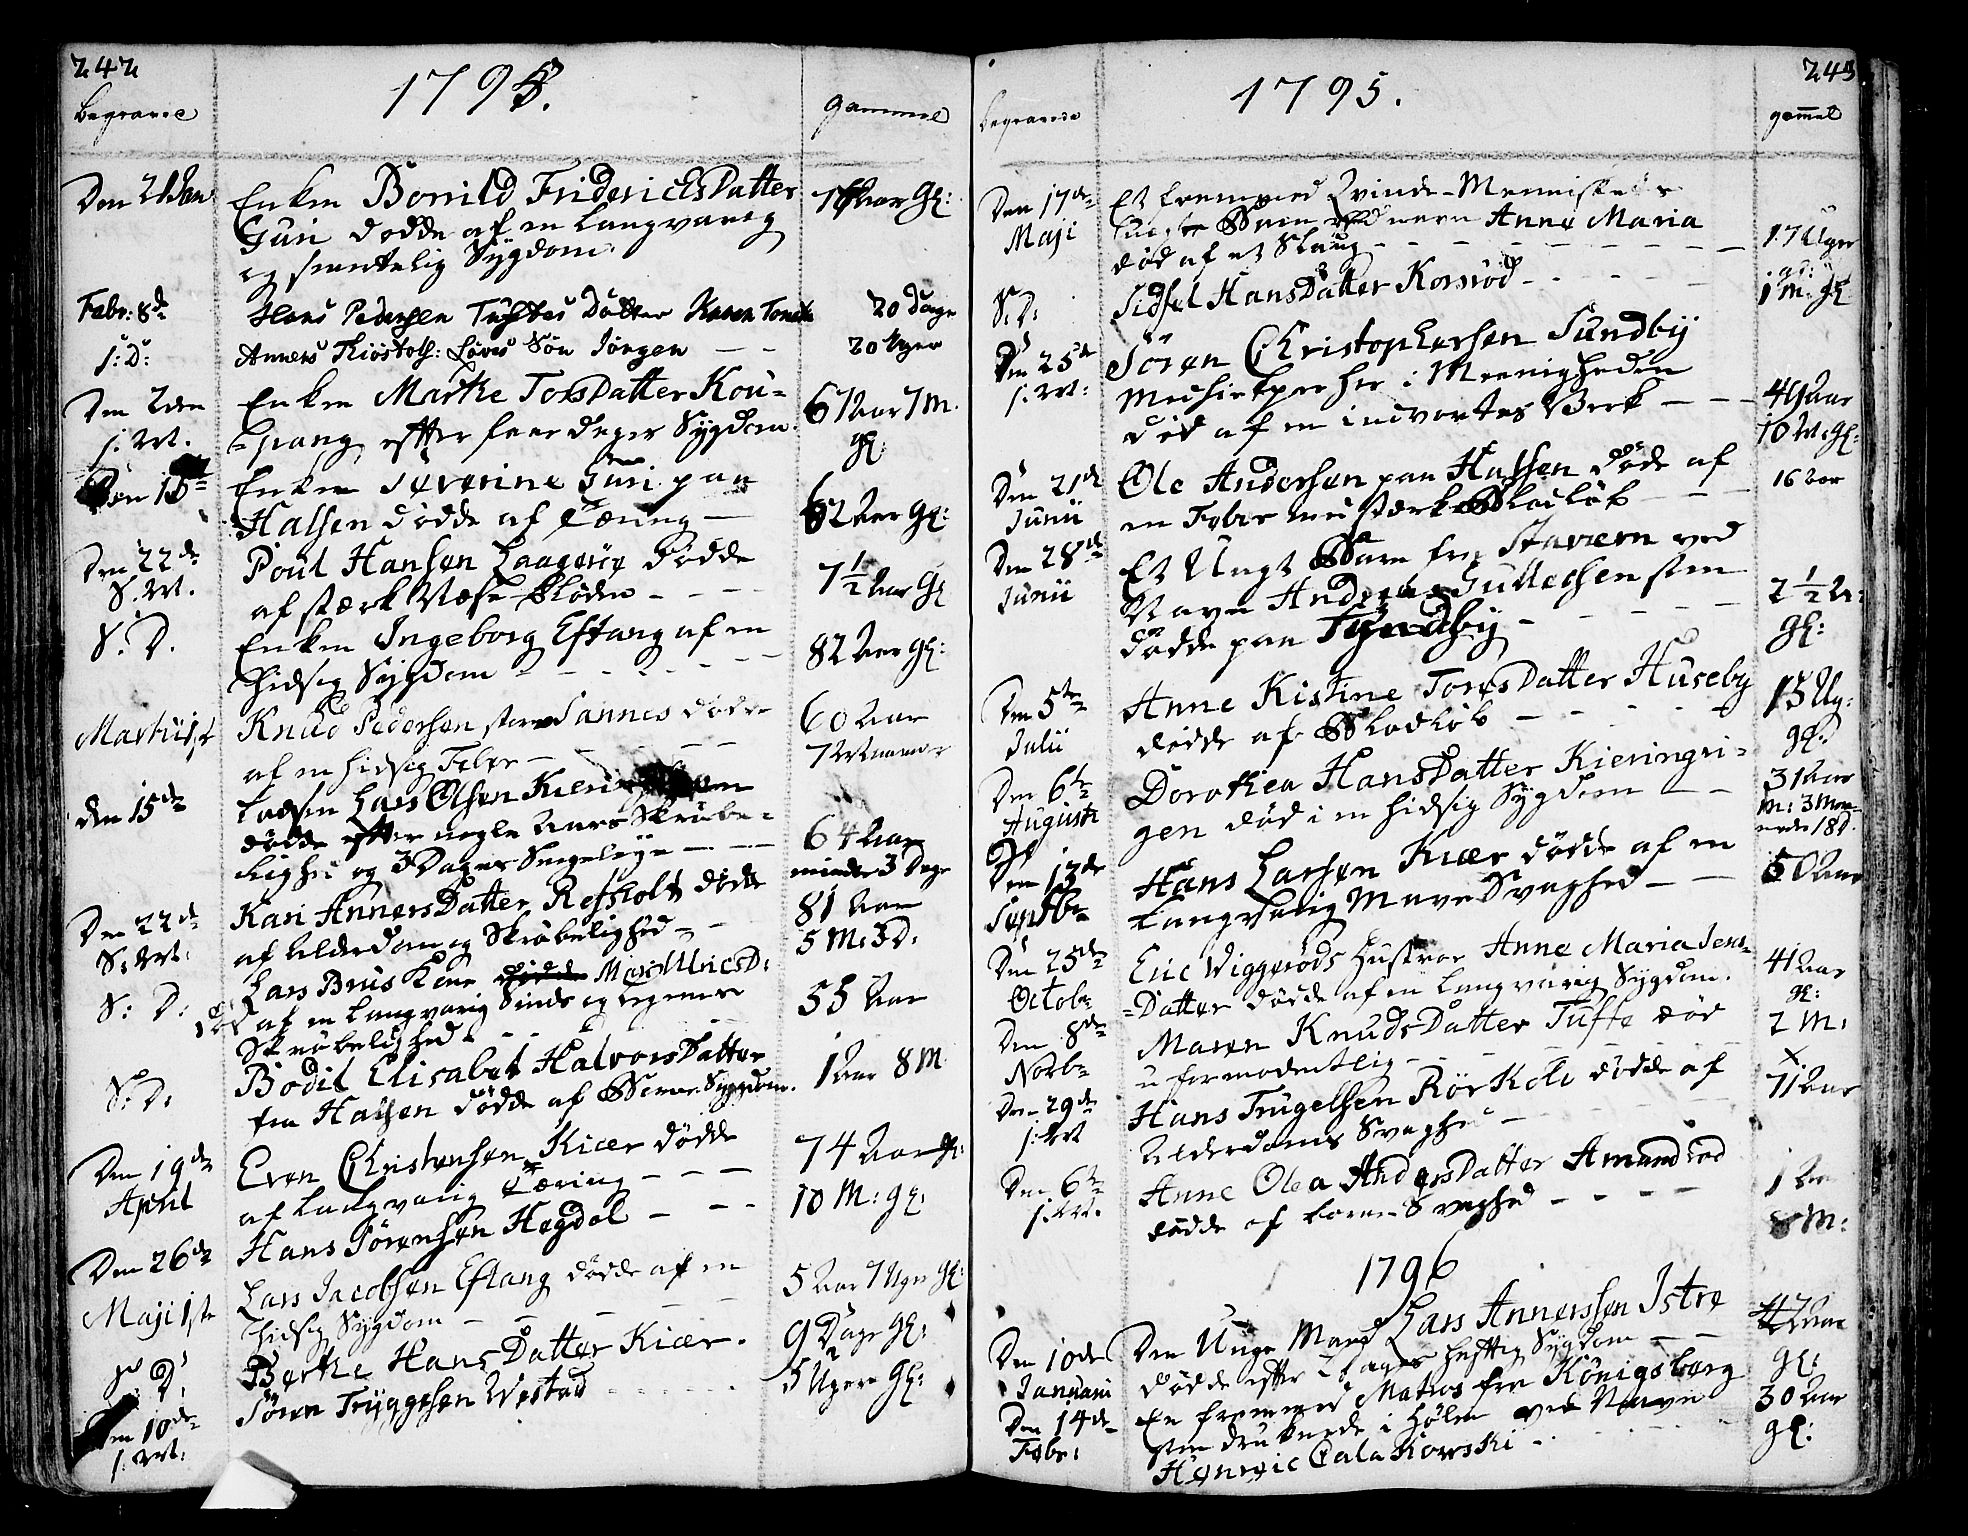 242
1795.
begravne
gammel
Den 21 Jan
Enken Bornild FriderichsDatter
76 Aar gl:
Guri dødde af en langvarig
og smertelig Sygdom.
Febr: 8de
Hans Pedersen Tuftes Datter Karen
20 Dage
S: D:
Anners Kiøstolf: Løves Søn Jørgen — —
20 Uger
Den 2den
Enken Marthe TorsDatter Kou-
67 Aar 7 M.
s: M.
-pang efter faae dages Sygdom.
gl:
Den 15de
Enken Severine Guri paa
Halsen dødde af Tæring —
62 Aar gl:
Den 22de
Poul Hansen Laagerøe dødde
S. M.
af stærk Næse-Bloden - - - -
7 1/2 Aar gl
S. D.
Enken Ingeborg Eftang af en
82 Aar gl:
hidsig Sygdom - - - - -
Martii 1ste
Knud Pedersen store Sannes dødde
60 Aar
af en hidsig Feber — - - - -
7 Maaneder
den 15de
Lodsen Lars Olsen
dødde efter nogle Aars Skrøbe-
64 Aar
lighed og 3 Dages Sengeleye — — —
mindre 3 Dage
Den 22de
Kari AnnersDatter Refsholt dødde
81 Aar
S: M:
af Alderdom og Skrøbelighed - -
5 M: 3 D:
S: D:
Lars Brus Kone dødde Mari UlricsD:
død af en langvarig Sinds og Legemes
55 Aar
Skrøbelighed - -
S: D:
Bodil Elisabet HalvorsDatter
1 Aar 8 M
fra Halsen dødde af Børne Sygdom.
Den 19de
Even Christensen Kiær dødde
74 Aar gl:
April
af langvarig Tæring — — —
Den 26de
Hans Sørensen Hegdal — — -
10 M: gl:
Maji 1ste
Lars Jacobsen Eftang dødde af en
5 Aar 7 Uger gl:
hidsig Sygdom - - - - -
S: D:
Berthe HansDatter Kiær.
9 Dage gl:
Den 10de
Søren Tryggesen Westad - - - - -
5 Ugere gl:
s: M:
243
1795.
begravede
gamel
Den 17de
Et fremmed Qvinde-Menniskes
Maji
uægte Barn ved navn Anne Maria
død af et Slaug - - - - - -
17 Uger
gl:
S: D:
Sidsel HansDatter Korsrød - - - -
1 M: gl
Den 25de
Søren Christophersen Sundbÿ
s: M:
Medhielper her i Meenigheden
49 Aar
død af en indvortes Verk - - -
10 M: gl:
Den 21de
Ole Andersen paa Halsen døde af
16 Aar
Junii
en Feber med stærk Blodløb - - -
Den 28de
Et Ungt Barn fra Stavern ved
Junii
Navn Andreas Gullachsen som
2 1/2 Ar
dødde paa Sundby - - - - -
gl:
Den 5te
Anne Kistine ToresDatter Huseby
15 Ug:
Julii
dødde af Blodløb — - - - -
gl:
Den 6te
Dorothea HansDatter Kieringri-
31 Aar
Augusti
gen død i en hidsig Sygdom - - -
M: 3 Maa-
neder 18 D.
Den 13de
Hans Larsen Kiær dødde af en
50 Aar
Septbr
langvarig Mave Svaghed — —
Den 25de
Eric Wiggerøds Hustroe Anne Maria Jens-
41 Aar
Octobr
-Datter dødde af en langvarig Sygdom.
gl:
Den 8de
Maren KnudsDatter Tufte død
2 M:
Novbr
uformodentlig - - - - - -
Den 29de
Hans Trugelsen Rørkoll dødde af
71 Aar
s: M
Alderdoms Svaghed - - - -
Den 6te
Anne Olea AndersDatter Amundrød
1 Aar
s: M.
dødde af Børne Svaghed - - - -
8 M:
1796
Den 10de
Den Unge Mand Lars Annerssen Istre
Januarii
dødde efter 2 dages heftig Sygdom — —
gl:
Den 14de
En fremmed Matros fra Königsberg
30 Aar
Febr:
som druknede i Hølen ved Navn
gl:
Henric Calakowski - - - -